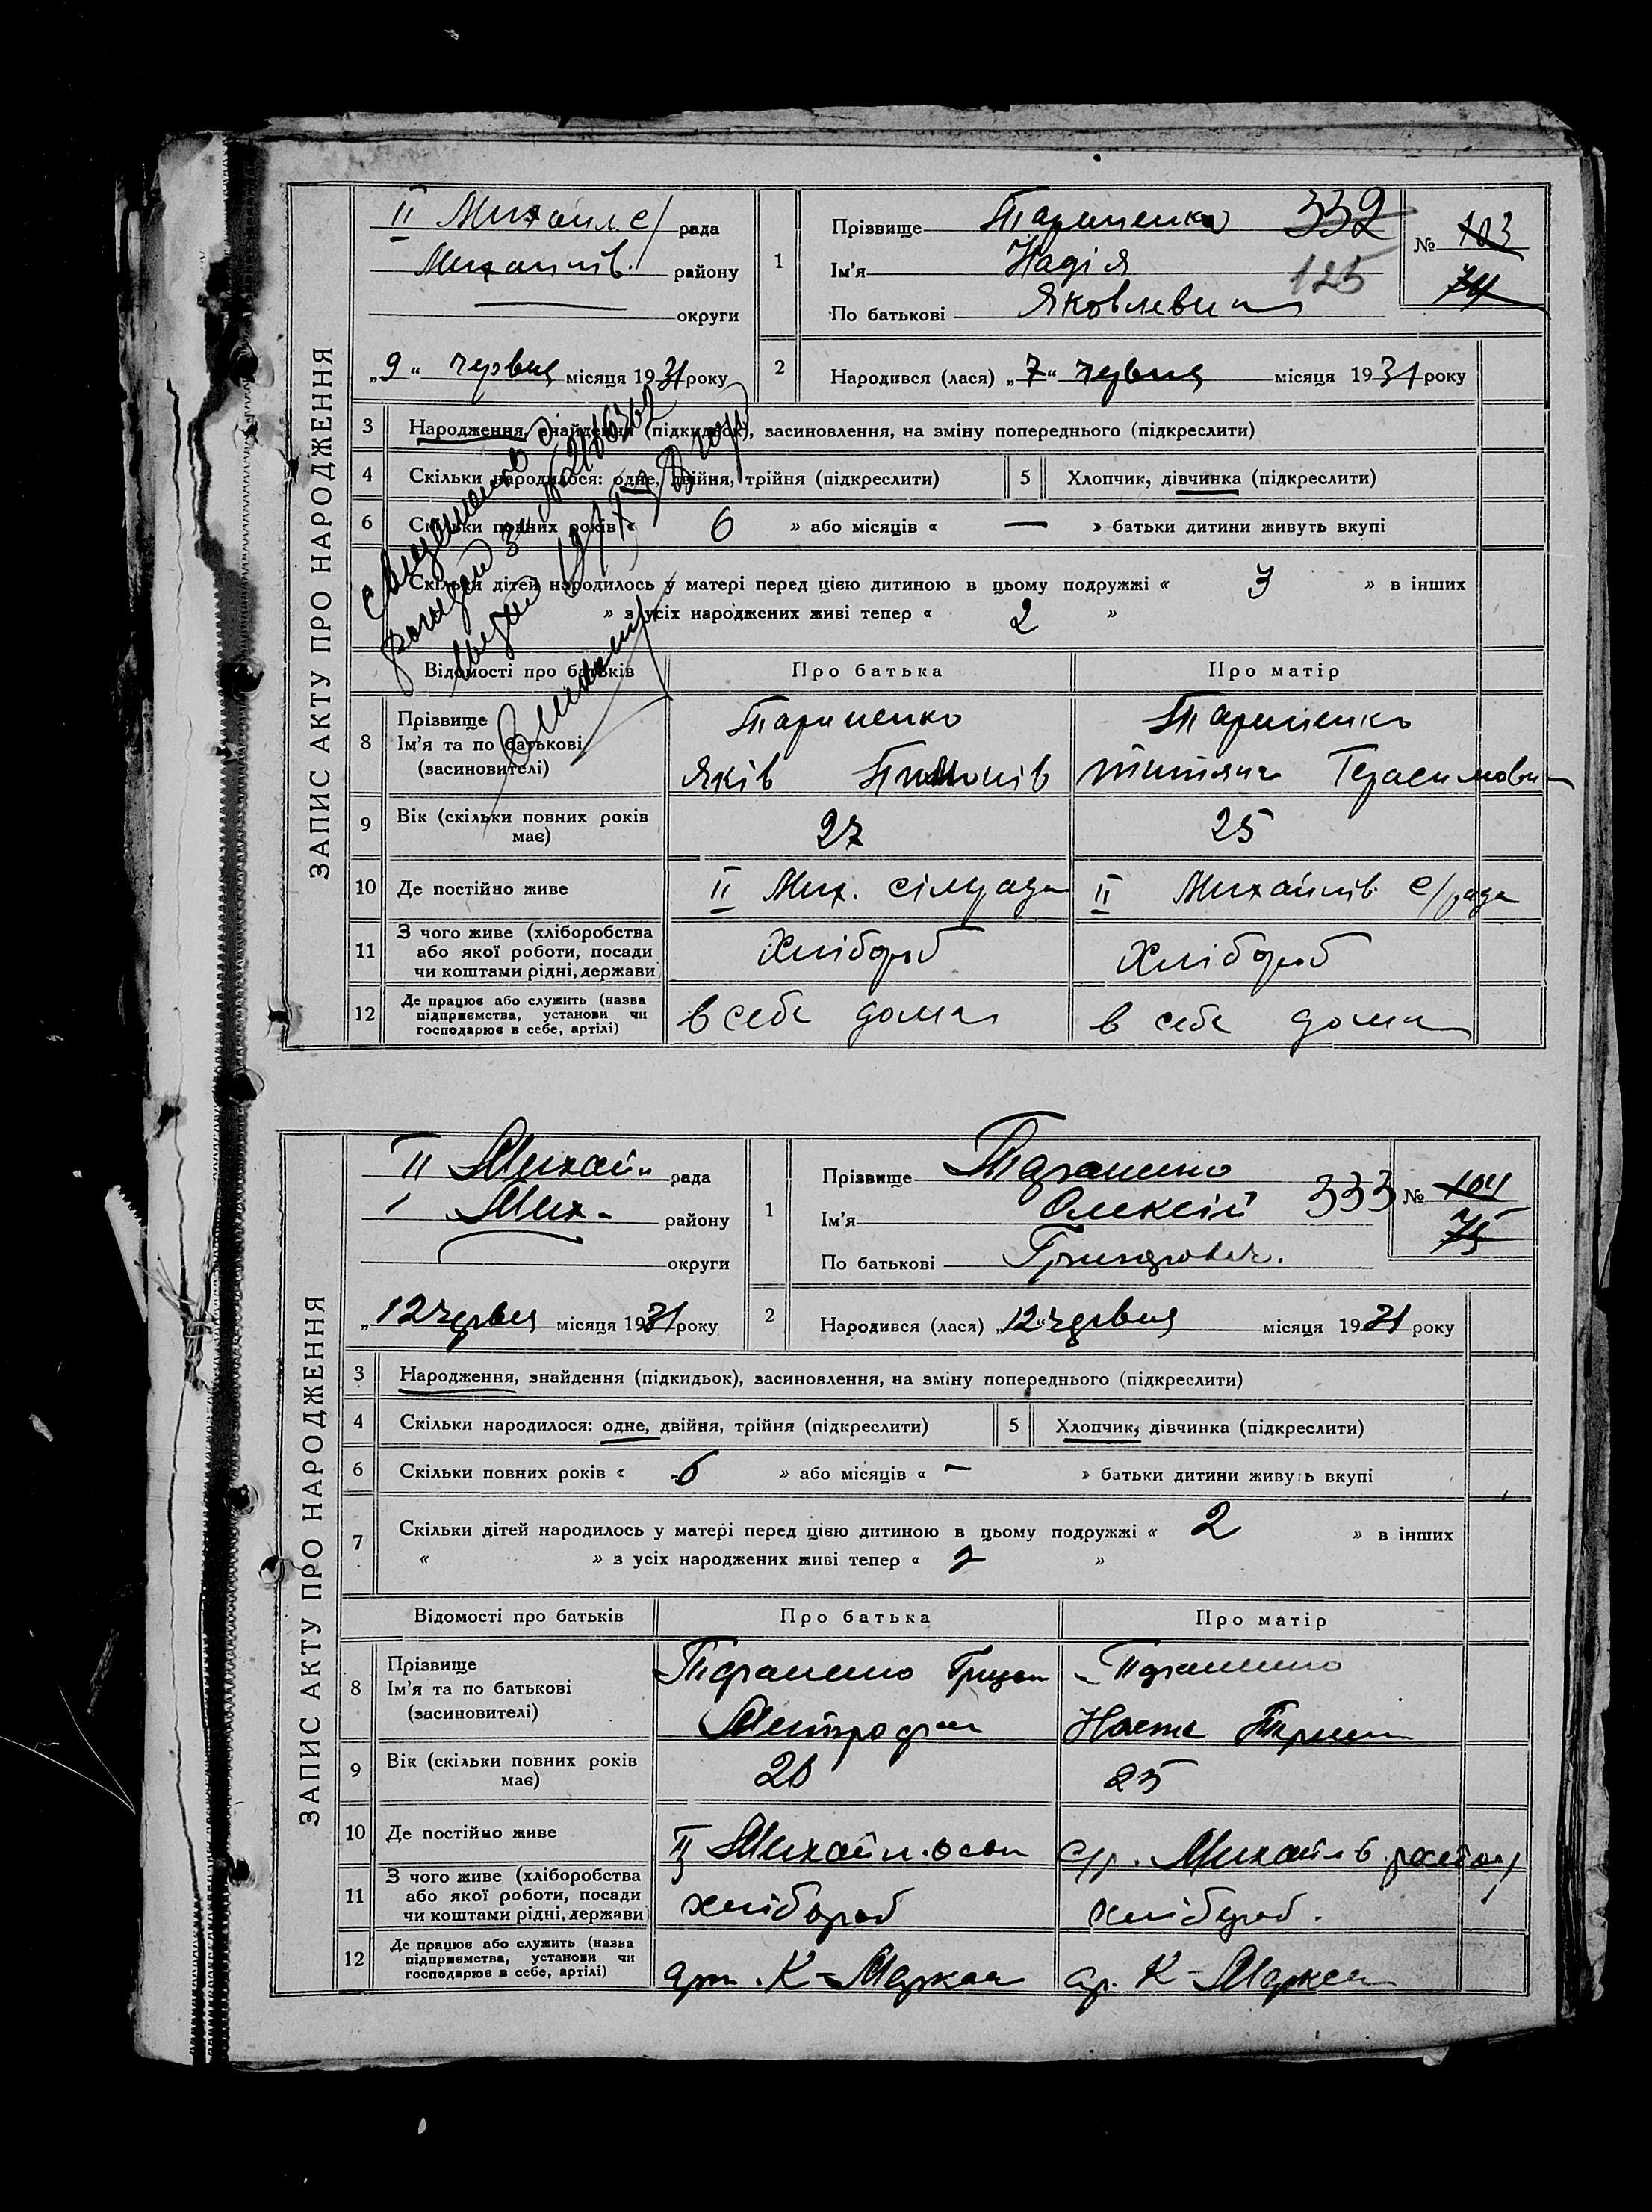 ЗАПИС АКТУ ПРО НАРОДЖЕННЯ
II Михайл. с/ рада
Михайлів. району
округи
„9“ червня місяця 1931 року
1
Прізвище
332
Ім'я Надія
125
По батькові Яковлевна
№ 103
74
2
Народився (лася) „7“ червня місяця 1931 року
3 Народження, знайдення (підкидьок), засиновлення, на зміну попереднього (підкреслити)
4 Скільки народилося: одне, двійня, трійня (підкреслити)
5 Хлопчик, дівчинка (підкреслити)
6 Скільки повних років « 6 » або місяців « — » батьки дитини живуть вкупі
Скільки дітей народилось у матері перед цією дитиною в цьому подружжі « 3 » в інших
» з усіх народжених живі тепер « 2 »
Відомості про батьків Про батька Про матір
8 Прізвище
Ім'я та по батькові
(засновителі)
Яків
Титяна Герасимовн
9 Вік (скільки повних років має) 27 25
10 Де постійно живе II Мих. сільрада II Михайлів с/рада
11 З чого живе (хліборобства або якої роботи, посади чи коштами рідні, держави) Хлібороб Хлібороб
12 Де працює або служить (назва підприємства, установи чи господарює в себе, артілі) в себе дома в себе дома
ЗАПИС АКТУ ПРО НАРОДЖЕННЯ
II Михайл рада
Мих- району
округи
„12 червня місяця 1931 року
1
Прізвище
Ім'я Олексій 333
По батькові
№ 104
75
2
Народився (лася) „12“ червня місяця 1931 року
3 Народження, знайдення (підкидьок), засиновлення, на зміну попереднього (підкреслити)
4 Скільки народилося: одне, двійня, трійня (підкреслити)
5 Хлопчик, дівчинка (підкреслити)
6 Скільки повних років « 6 » або місяців « – » батьки дитини живуть вкупі
7 Скільки дітей народилось у матері перед цією дитиною в цьому подружжі « 2 » в інших
« » з усіх народжених живі тепер « 2 »
Відомості про батьків Про батька Про матір
8 Прізвище
Ім'я та по батькові
(засиновителі)
Митрофан
Настя
9 Вік (скільки повних років має) 25
10 Де постійно живе II Михайл. с/р. Михайлів району
11 З чого живе (хліборобства або якої роботи, посади чи коштами рідні, держави) хлібороб хлібороб.
12 Де працює або служить (назва підприємства, установи чи господарює в себе, артілі) арт. К-Маркса ар. К-Маркса